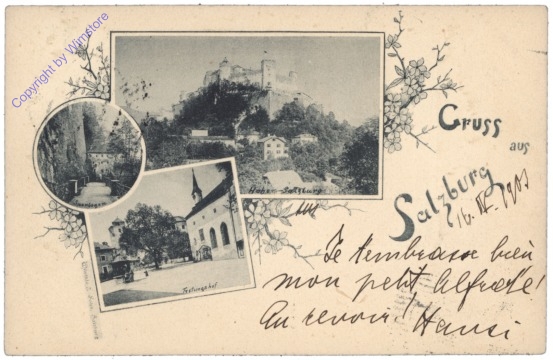 Copyright by Wimstore
Gruss
aus
Salzburg
Hohen-Salzburg
Festungshof
Je t'embrasse bien
mon petit Alfred!
Au revoir! Hansi